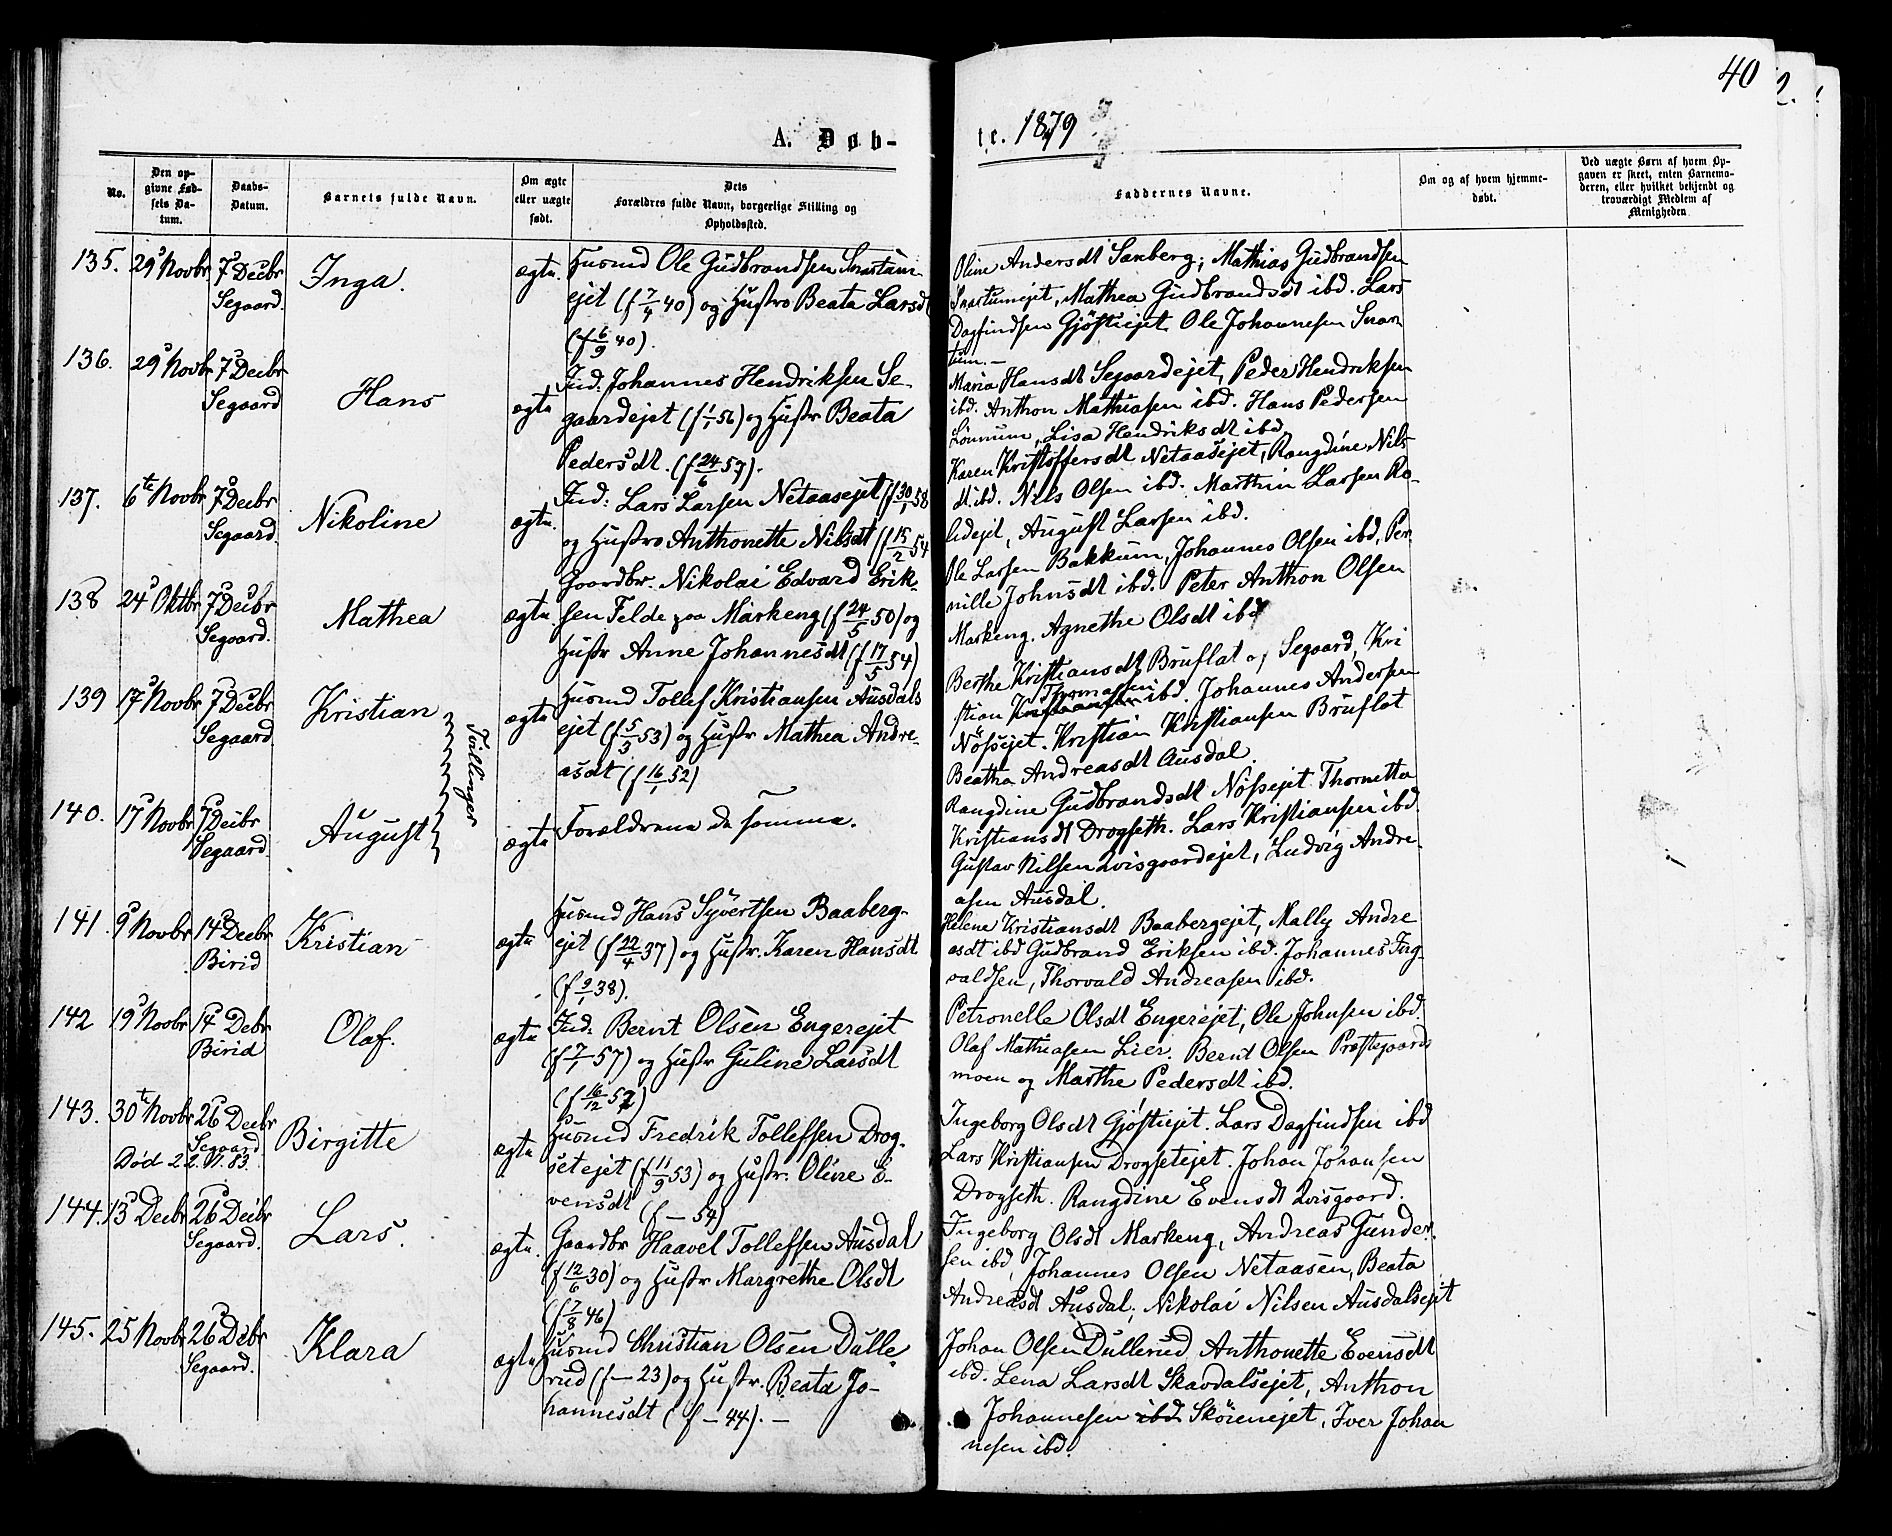 40
A. Døb-
te. 1879
No.
Den op-
givne Fød-
sels Da-
tum.
Daabs-
Datum.
Barnets fulde Navn.
Om ægte
eller uægte
født.
Dets
Forældres fulde Navn, borgerlige Stilling og
Opholdssted.
Faddernes Navne.
Om og af hvem hjemme-
døbt.
Ved uægte Børn af hvem Op-
gaven er skeet, enten Barnemo-
deren, eller hvilket bekjendt og
troværdigt Medlem af
Menigheden
135. 29 Novbr 7 Decbr
Segaard.
Inga.
ægte.
Husmd Ole Gudbrandsen Snartum-
ejet (f 7/4 40) og Hustro Beata Larsdt
(f 6/9 40).
Oline Andersdt Saxberg; Mathias Gudbrandsen
Snartumejet, Mathea Gudbrandsdt ibd. Lars
Dagfindsen Gjøstiejet Ole Johannesen Snar-
tum.—
136. 29 Novbr 7 Decbr
Segaard
Hans
ægte
Ind. Johannes Hendriksen Se-
gaardejet (f 1/1 56) og Hustr Beata
Pedersdt. (f 24/6 57).
Maria Hansdt Segaardejet, Peder Hendriksen
ibd. Anthon Mathiasen ibd. Hans Pedersen
Lönnum, Lisa Hendriksdt ibd.
137. 6te Novbr 7 Decbr
Segaard.
Nikoline
ægte.
Ind: Lars Larsen Netaasejet (f 30/1 58
og Hustro Anthonette Nilsdt (f 15/2 54
Karen Kristoffersdt Netaasejet, Rangdine Nils-
dt ibd. Nils Olsen ibd. Marthin Larsen Ro-
lidejet, August Larsen ibd.
138 24 Oktbr 7 Decbr
Segaard.
Mathea
ægte.
Gaardbr. Nikolai Edvard Erik-
sen Felde paa Markeng (f 24/5 50) og
Hustr Anne Johannesdt (f 17/5 54)
Ole Larsen Bakkum, Johannes Olsen ibd, Per-
nille Johnsdt ibd. Peter Anthon Olsen
Markeng. Agnethe Olsdt ibd
139 17 Novbr 7 Decbr
Segaard
Kristian
Tvillinger
ægte
Husmd Tollef Kristiansen Ausdals
ejet (f 5/3 53) og Hustr Mathea Andre-
asdt (f 16/1 52)
Berthe Kristiansdt Bruflat af Segaard, Kri
stian Thomasen ibd. Johannes Andersen
Nössejet. Kristian Kristiansen Bruflat
Beatha Andreasdt Ausdal.
140. 17 Novbr 7 Decbr
Segaard.
August
ægte
Forældrene de samme.
Rangdine Gudbrandsdt Nössejet Thornetta
Kristiansdt Drogseth. Lars Kristiansen ibd.
Gustav Nilsen Qvisgaardejet, Ludvig Andre-
asen Ausdal.
141. 9 Novbr 14 Decbr
Birid
Kristian
ægte
Husmd Hans Syvertsen Baaberg-
ejet (f 22/4 37) og Hustr. Karen Hansdt
(f 9/1 38).
Helene Kristiansdt Baabergejet, Mally Andre
asdt ibd Gudbrand Eriksen ibd. Johannes Ing-
valdsen, Thorvald Andreasen ibd.
142 19 Novbr 14 Debr
Birid
Olaf.
ægte
Ind: Bernt Olsen Engerejet
(f 7/1 57) og Hustr Guline Larsdt
(f 16/12 57)
Petronelle Olsdt Engerejet, Ole Johnsen ibd.
Olaf Mathiasen Lier. Bernt Olsen Præstegaards
moen og Marthe Pedersdt ibd.
143. 30te Novbr 26 Decbr
Segaard
Død 22. VI. 83.
Birgitte
ægte
Husmd Fredrik Tollefsen Drog-
setejet (f 11/9 53) og Hustr. Oline E-
vensdt (f — 54)
Ingeborg Olsdt Gjøstiejet. Lars Dagfindsen ibd
Lars Kristiansen Drogsetejet. Johan Johansen
Drogseth. Rangdine Evensdt Qvisgaard.
144. 13 Decbr 26 Decbr
Segaard.
Lars.
ægte.
Gaardbr Haavel Tollefsen Ausdal
(f 12/6 30) og Hustr Margrethe Olsdt
(f 7/8 46)
Ingeborg Olsdt Markeng, Andreas Gunder-
sen ibd, Johannes Olsen Netaasen, Beata
Andreasdt Ausdal, Nikolai Nilsen Ausdalsejet
145. 25 Novbr 26 Debr
Segaard.
Klara
ægte
Husmd Christian Olsen Dulle-
rud (f — 23) og Hustr. Beata Jo-
hannesdt (f — 44). —
Johan Olsen Dullerud Anthonette Evensdt
ibd. Lena Larsdt Skavdalsejet, Anthon
Johannesen ibd Skörenejet, Iver Johan
nesen ibd.